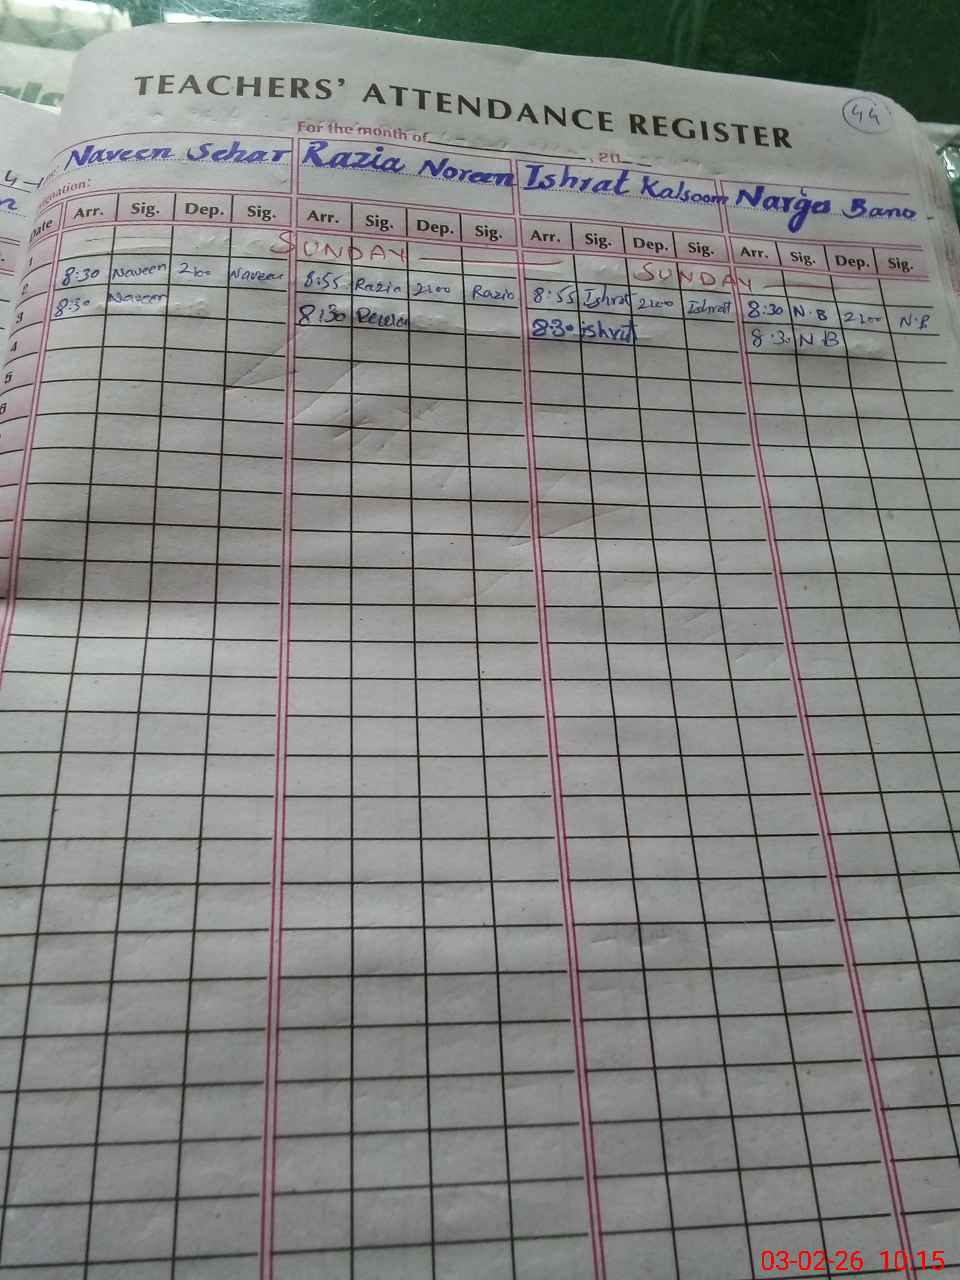 TEACHERS' ATTENDANCE REGISTER
44
For the month of , 20
Naveen Sehar Razia Noreen Ishrat Kalsoom Narges Bano
Date Arr. Sig. Dep. Sig. Arr. Sig. Dep. Sig. Arr. Sig. Dep. Sig. Arr. Sig. Dep. Sig.
1 SUNDAY SUNDAY
2 8:30 Naveen 2:00 Naveen 8:55 Razia 2:00 Razia 8:55 Ishrat 2:00 Ishrat 8:30 N.B 2:00 N.B
3 8:30 Naveen 8:30 8:30 ishrat 8:30 N B
4
5
6
03-02-26 10:15